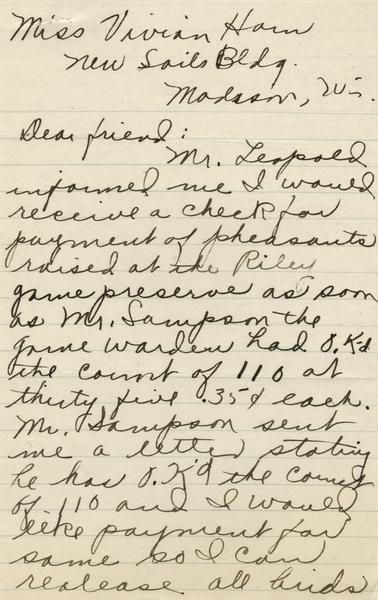 Miss Vivian Horn
New Soils Bldg.
Madason, Wis.
Dear friend:
Mr. Leopold
informed me I would
receive a check for
payment of pheasants
raised at the Riley
game preserve as soon
as Mr. Sampson the
game warden had O.K'd
the count of 110 at
thirty five .35¢ each.
Mr. Sampson sent
me a letter stating
he has O.K'd the count
of 110 and I would
like payment for
same so I can
realease all birds